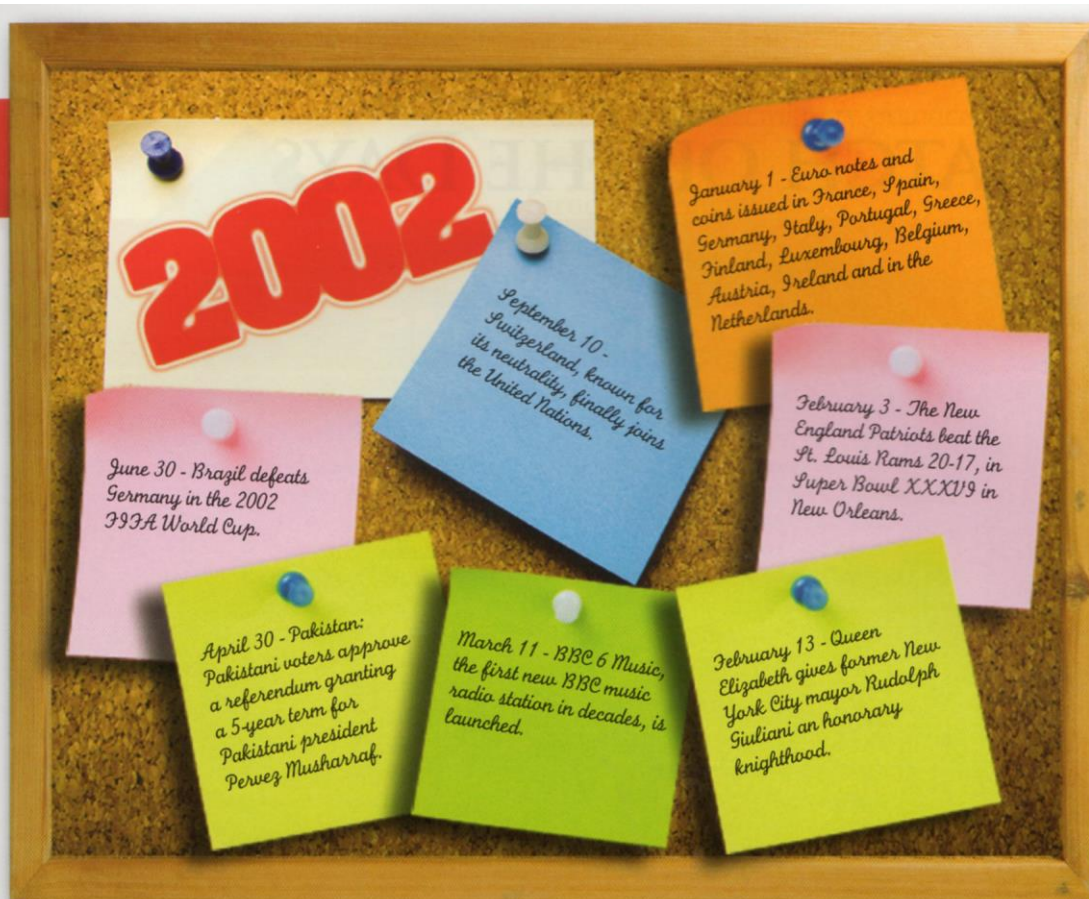 2002
January 1 - Euro notes and
coins issued in France, Spain,
Germany, Italy, Portugal, Greece,
Finland, Luxembourg, Belgium,
Austria, Ireland and in the
Netherlands.
September 10 -
Switzerland, known for
its neutrality, finally joins
the United Nations.
February 3 - The New
England Patriots beat the
St. Louis Rams 20-17, in
Super Bowl XXXVI in
New Orleans.
June 30 - Brazil defeats
Germany in the 2002
FIFA World Cup.
April 30 - Pakistan:
Pakistani voters approve
a referendum granting
a 5-year term for
Pakistani president
Pervez Musharraf.
March 11 - BBC 6 Music,
the first new BBC music
radio station in decades, is
launched.
February 13 - Queen
Elizabeth gives former New
York City mayor Rudolph
Giuliani an honorary
knighthood.